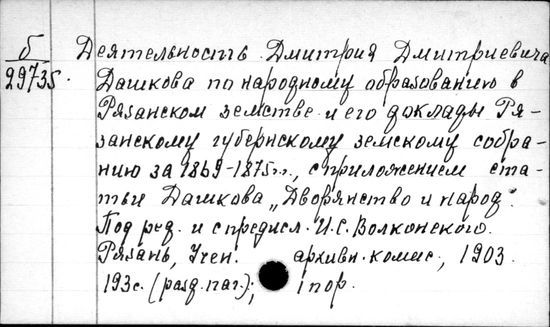 б
29735.
Деятельность Дмитрия Дмитриевича
Дашкова по народному образованию в
Рязанском земстве и его доклады Ря-
занскому губернскому земскому собра-
нию за 1869-1875 г.г., с приложением ста-
тьи Дашкова „Дворянство и народ".
Под ред. и с предисл. И.С. Волконского.
Рязань, Учен. архивн. комис., 1903.
193 с. (разд. паг.); 1 пор.